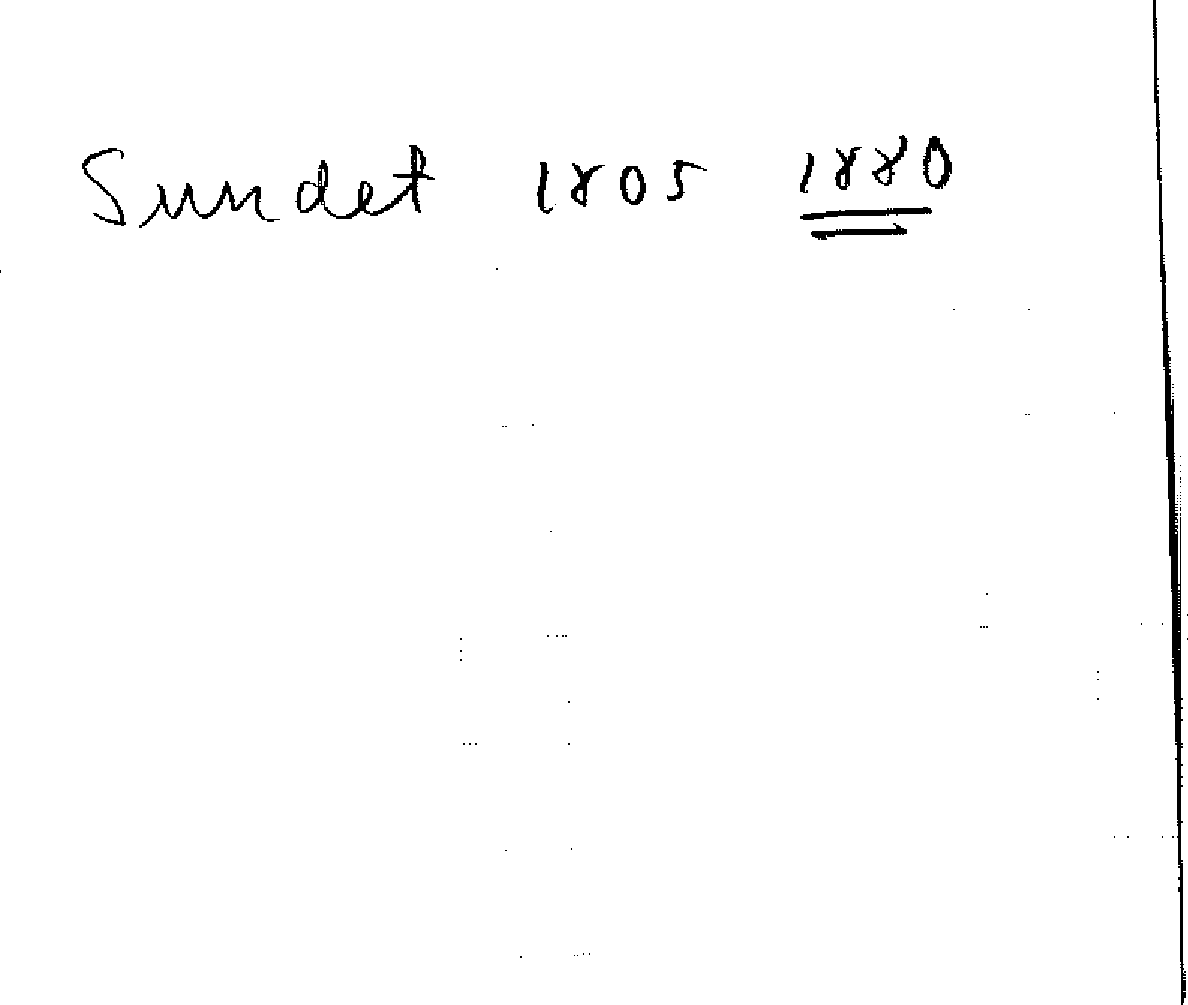 Sundet 1805 1880